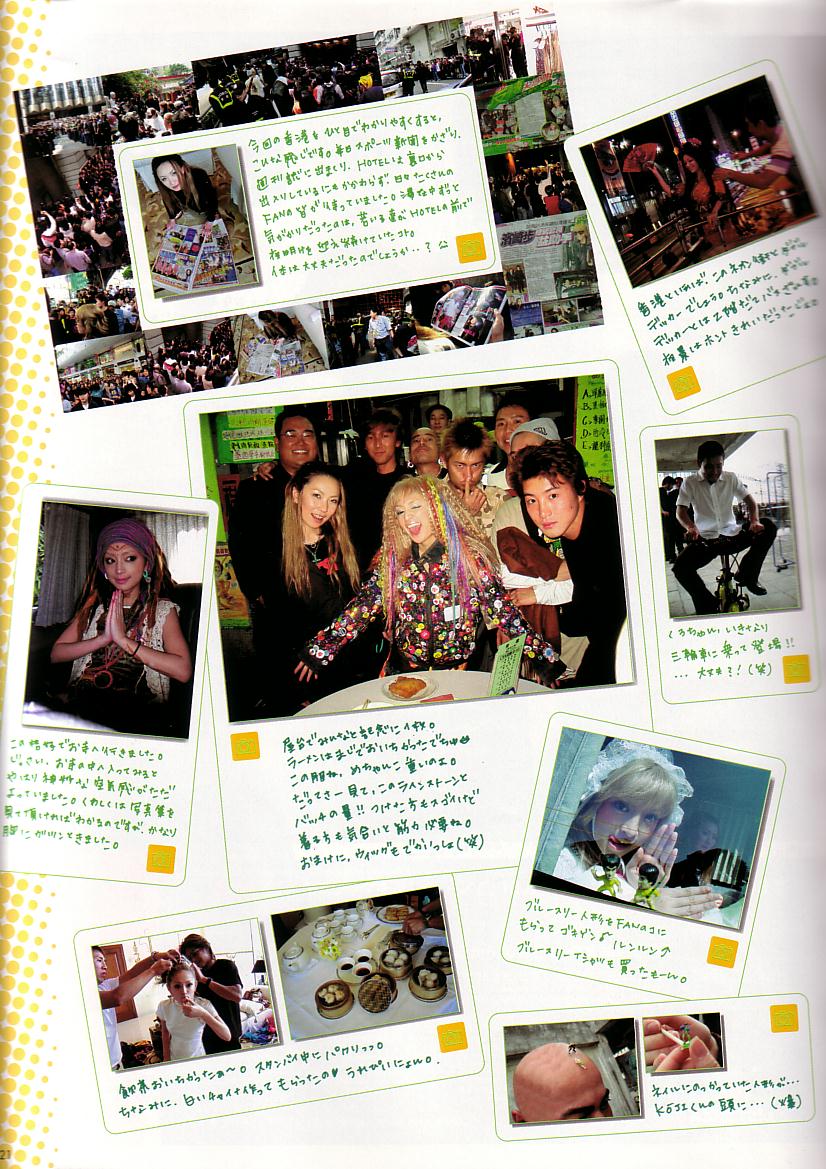 今回の香港をひと目でわかりやすくすると、
こんな感じです。毎日スポーツ新聞をかざり、
週刊誌に出まくり、HOTELは裏口から
出入りしているにもかかわらず、日々たくさんの
FANの皆が待っていました。
気がかりだったのは、若い子達がHOTELの前で
夜明けを迎え続けていたコト。
体は大丈夫だったのでしょうか‥?
香港といえば、このネオン街と
デッカーでしょう。ちなみに、
デッカーとは2階だてバスです。
夜景はホントきれいだった
A.
B.
C.
D.
E.
くろちゃん、いきなり
三輪車に乗って登場!!
…大丈夫?!(笑)
この格好でお寺へ行きました。
じっさい、お寺の中へ入ってみると
やはり神妙な空気感がただ
よっていました。くわしくは写真集を
見て頂ければわかるのですが、かなり
胸にガツンときました。
屋台でみんなと記念に1枚。
ラーメンはまじでおいちかったでちゅ
この服ね、めちゃんこ重いのョ。
だってさー見て、このラインストーンと
バッチの量!!つけた方もスゴイけど
着る方も気合いと筋力必要ね。
おまけに、ウィッグもでかいっしょ(笑)
ブルースリー人形をFANのコに
もらってゴキゲン♪ルンルン↗
ブルースリーTシャツも買ったもーん。
飲茶おいちかったぁ〜。スタンバイ中にパクリっっ。
ちなみに、白いチャイナ作ってもらったの♥うれぴいにょん。
ネイルにのっかっていた人形が…
KOJIくんの頭に…(爆)
21